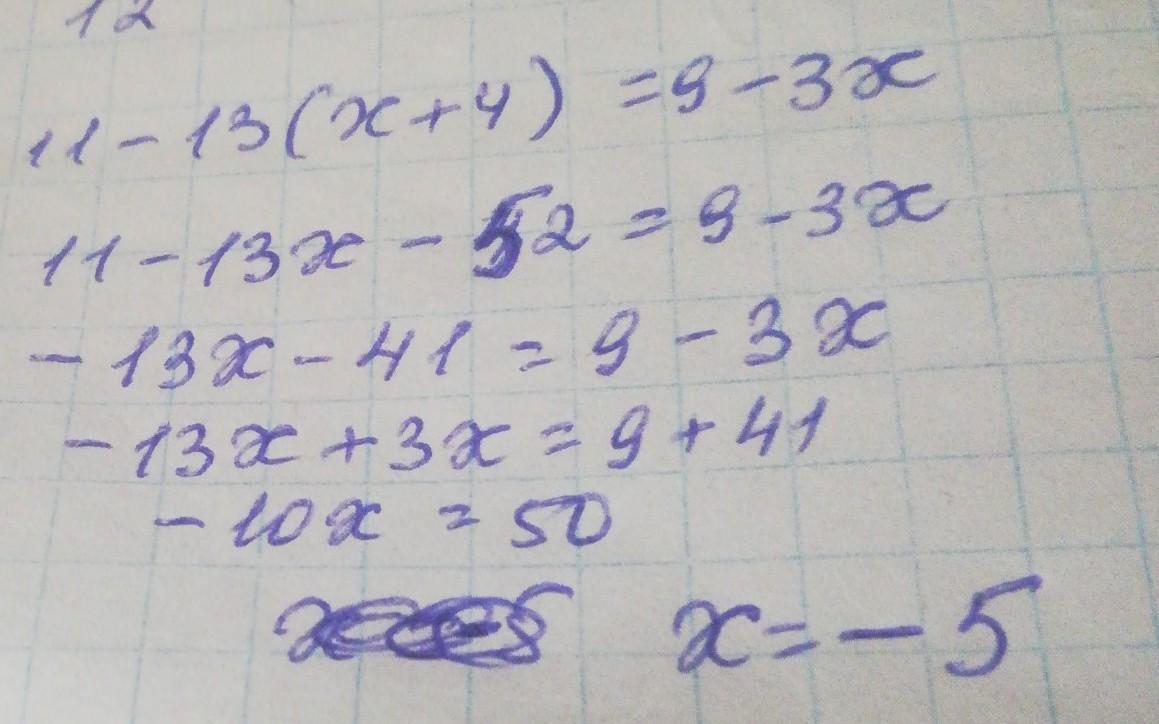 12
11 - 13(x + 4) = 9 - 3x
11 - 13x - 52 = 9 - 3x
- 13x - 41 = 9 - 3x
- 13x + 3x = 9 + 41
- 10x = 50
x = - 5